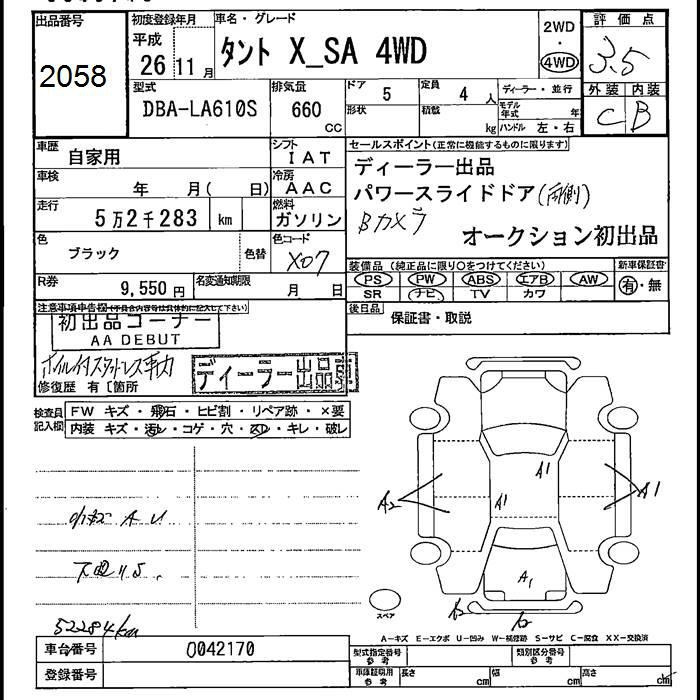 出品番号 初度登録年月 車名・グレード 2WD 評価点
2058 平成 26 11月 タント X_SA 4WD ・ 4WD 3.5
型式 排気量 ドア 5 定員 4人 ディーラー・並行 外装 内装
DBA-LA610S 660 CC 形状 積載 kg モデル年式 年 ハンドル 左・右 C B
車歴 自家用 シフト IAT セールスポイント(正常に機能するものに限ります)
車検 年 月( 日) 冷房 AAC ディーラー出品
走行 5万2千283 km 燃料 ガソリン パワースライドドア(両側)
色 ブラック 色替 色コード X07 Bカメラ
オークション初出品
R券 9,550円 名変通知期限 月 日 装備品(純正品に限り○をつけてください) 新車保証書
PS PW ABS エアB AW 有・無
SR ナビ TV カワ
注意事項申告欄(不具合内容等は具体的に記入して下さい) 後日品 保証書・取説
初出品コーナー
AA DEBUT
ホイル付スタットレス車内
ディーラー出品
修復歴 有〔箇所
検査員記入欄 FW キズ・飛石・ヒビ割・リペア跡・×要
内装 キズ・汚レ・コゲ・穴・スレ・キレ・破レ
A1
A2 A1 A1
小キズ A U
A1
52284km
スペア
A－キズ E－エクボ U－凹み W－補修跡 S－サビ C－腐食 XX－交換済
車台番号 0042170 型式指定番号 参考 類別区分番号 参考
登録番号 車庫証明用 参考 長さ cm 幅 cm 高さ cm